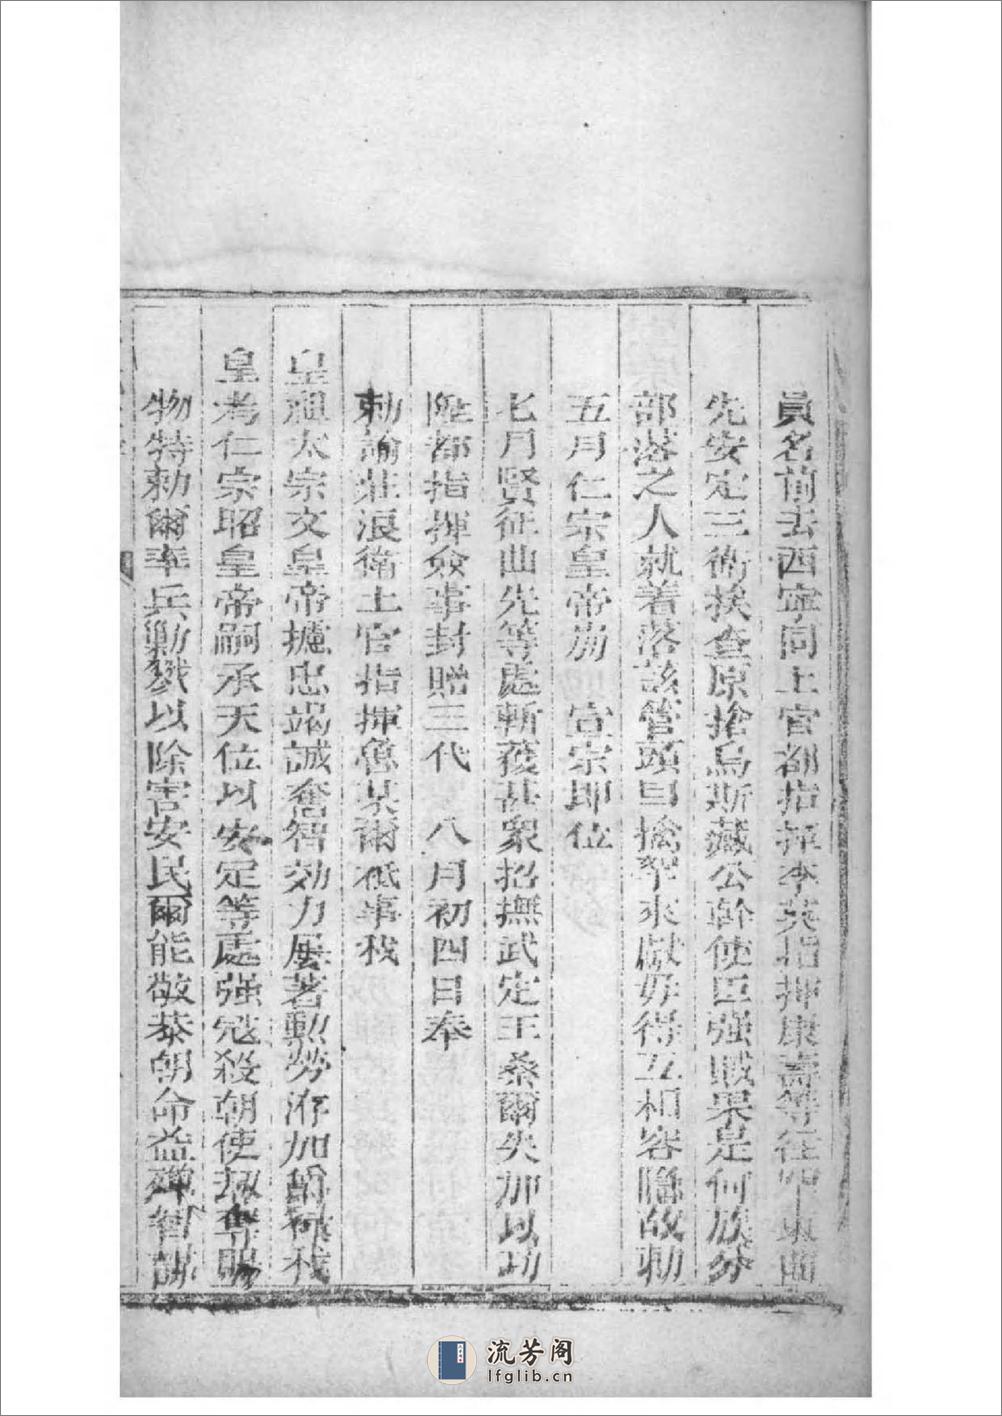 員名前去西寧同土官都指揮李英指揮康壽等往罕東曲
先安定三衛挨查原搶烏斯藏公幹使臣強賊果是何族分
部落之人就着落該管頭目擒拏來獻毋得互相容隱故勅
五月仁宗皇帝崩　宣宗即位
七月賢征曲先等處斬獲甚衆招撫武定王桑爾失加以功
陞都指揮僉事封贈三代　八月初四日奉
勅諭莊浪衛土官指揮魯某爾祗事我
皇祖太宗文皇帝攄忠竭誠奮智効力屢著勲勞洊加爵祿我
皇考仁宗昭皇帝嗣承天位以安定等處強寇殺朝使刼奪賜
物特勅爾率兵勦戮以除害安民爾能敬恭朝命益殫智謀
流芳阁
lfglib.cn